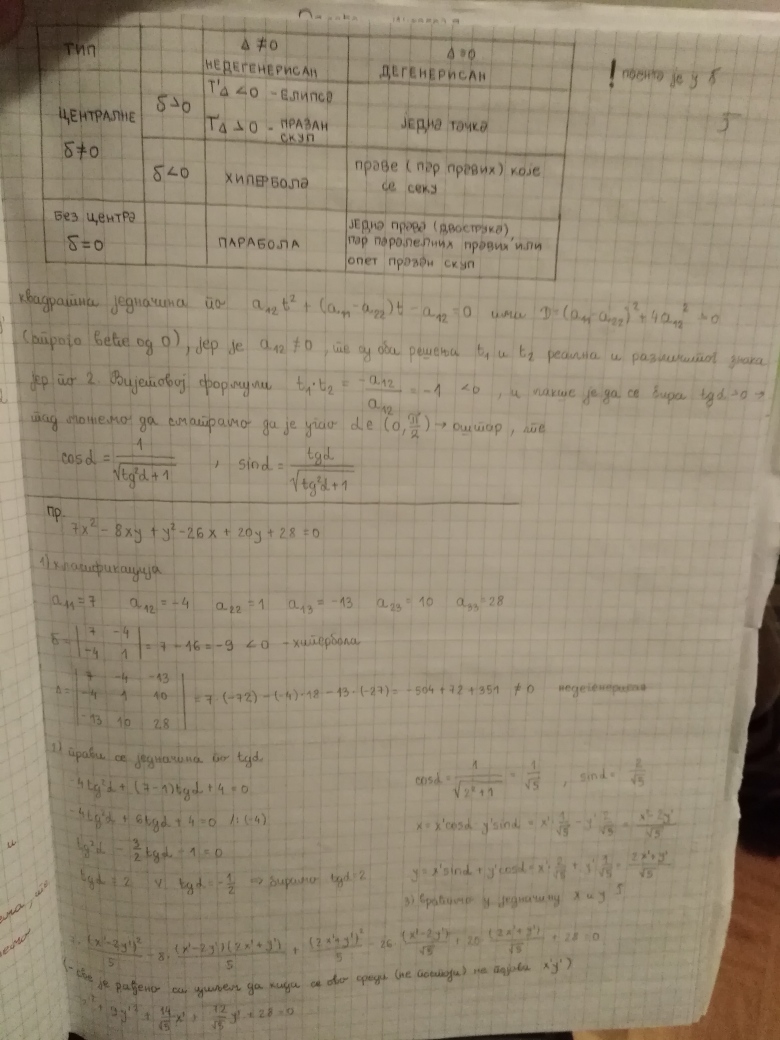 ТИП
Δ ≠ 0
НЕДЕГЕНЕРИСАН
Δ = 0
ДЕГЕНЕРИСАН
ЦЕНТРАЛНЕ
δ ≠ 0
δ > 0
TΔ < 0 - ЕЛИПСА
TΔ > 0 - ПРАЗАН СКУП
ЈЕДНА ТАЧКА
δ < 0
ХИПЕРБОЛА
праве (пар правих) које
се секу
БЕЗ ЦЕНТРА
δ = 0
ПАРАБОЛА
ЈЕДНА ПРАВА (ДВОСТРУКА)
пар паралелних правих или
опет празан скуп
! је у δ
5
квадратна једначина по a₁₂t² + (a₁₁ - a₂₂)t - a₁₂ = 0 или D = (a₁₁ - a₂₂)² + 4a₁₂² > 0
(строго веће од 0), јер је a₁₂ ≠ 0, те су оба решења t₁ и t₂ реална и различитог знака
јер по 2. Вијетовој формули t₁·t₂ = -a₁₂/a₁₂ = -1 < 0, и лакше је да се бира tgα > 0 →
тад можемо да сматрамо да је угао α ∈ (0, π/2) → оштар, те
cosα = 1/√(tg²α + 1) , sinα = tgα/√(tg²α + 1)
пр.
7x² - 8xy + y² - 26x + 20y + 28 = 0
1) класификација
a₁₁ = 7 a₁₂ = -4 a₂₂ = 1 a₁₃ = -13 a₂₃ = 10 a₃₃ = 28
δ = |7 -4; -4 1| = 7 - 16 = -9 < 0 - хипербола
Δ = |7 -4 -13; -4 1 10; -13 10 28| = 7·(-72) - (-4)·18 - 13·(-27) = -504 + 72 + 351 ≠ 0 недегенерисана
2) прави се једначина по tgα
-4tg²α + (7-1)tgα + 4 = 0
-4tg²α + 6tgα + 4 = 0 /:(-4)
tg²α - 3/2 tgα - 1 = 0
tgα = 2 v tgα = -1/2 ⇒ бирамо tgα = 2
cosα = 1/√(2² + 1) = 1/√5 , sinα = 2/√5
x = x'cosα y'sinα = x'·1/√5 - y'·2/√5 = (x' - 2y')/√5
y = x'sinα + y'cosα = x'·2/√5 + y'·1/√5 = (2x' + y')/√5
3) вратимо у једначину x и y
7·(x' - 2y')²/5 - 8·(x' - 2y')(2x' + y')/5 + (2x' + y')²/5 - 26 (x' - 2y')/√5 + 20·(2x' + y')/√5 + 28 = 0
(- све је рађено са циљем да кад се ово среди (не постоји) x'y')
y'² + 14/√5 x' + 72/√5 y' + 28 = 0